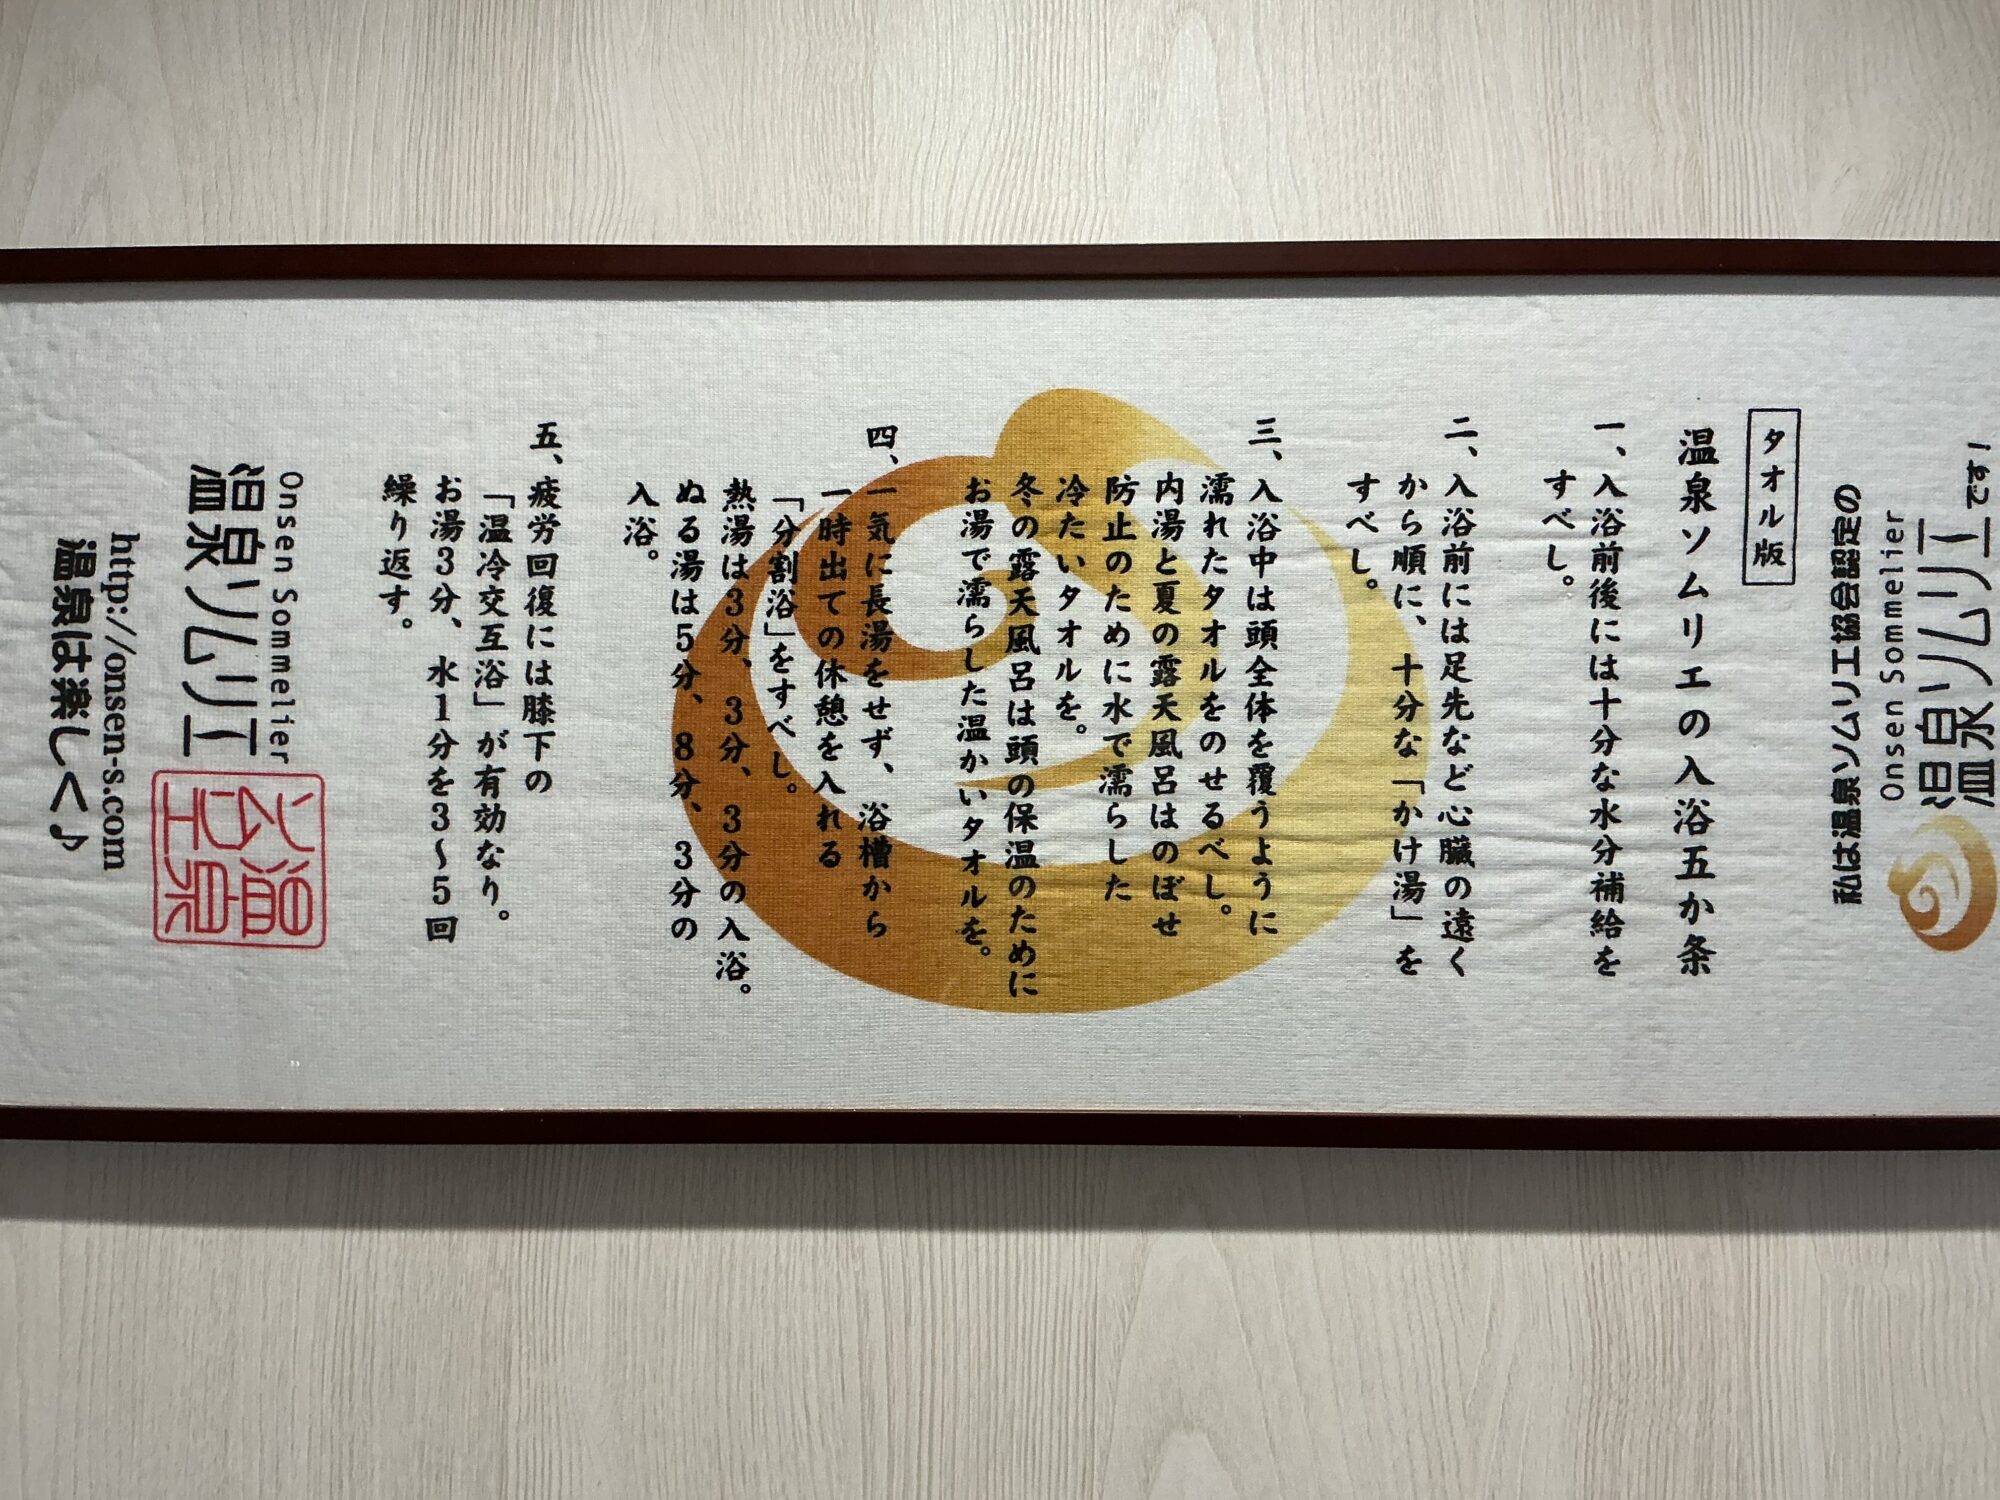 私は温泉ソムリエ協会認定の
Onsen Sommelier
温泉ソムリエです！
タオル版
温泉ソムリエの入浴五か条
一、入浴前後には十分な水分補給を
すべし。
二、入浴前には足先など心臓の遠く
から順に、十分な「かけ湯」を
すべし。
三、入浴中は頭全体を覆うように
濡れたタオルをのせるべし。
内湯と夏の露天風呂はのぼせ
防止のために水で濡らした
冷たいタオルを。
冬の露天風呂は頭の保温のために
お湯で濡らした温かいタオルを。
四、一気に長湯をせず、浴槽から
一時出ての休憩を入れる
「分割浴」をすべし。
熱湯は3分、3分、3分の入浴。
ぬる湯は5分、8分、3分の
入浴。
五、疲労回復には膝下の
「温冷交互浴」が有効なり。
お湯3分、水1分を3〜5回
繰り返す。
Onsen Sommelier
温泉ソムリエ
http://onsen-s.com
温泉は楽しく♪